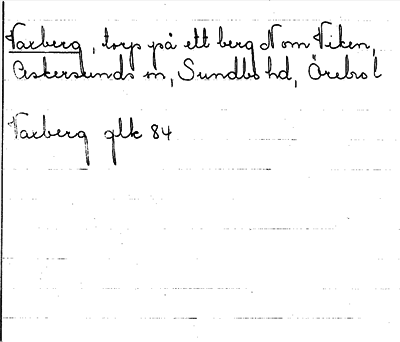 Varberg, torp på ett berg N om Viken,
Askersunds sn, Sundbo hd, Örebro l
Varberg glk 84